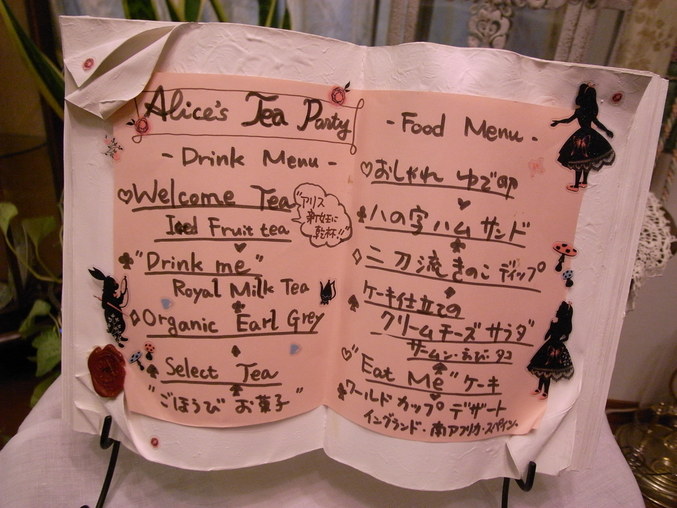 Alice's Tea Party
- Drink Menu -
♡Welcome Tea
"アリス
新女王に
乾杯"
Iced Fruit tea
♣"Drink me"
Royal Milk Tea
♢Organic Earl Grey
♠ Select Tea
"ごほうび お菓子"
- Food Menu -
♡おしゃれ ゆで卵
♠ハの字ハムサンド
♢二刀流きのこディップ
♠ケーキ仕立ての
クリームチーズサラダ
サーモン・えび・タコ
♡"Eat Me"ケーキ
♠ワールドカップ デザート
イングランド・南アフリカ・スペイン